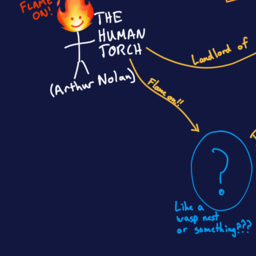 FLAME
ON!
THE
HUMAN
TORCH
(Arthur Nolan)
Landlord of
Flame on!!
?
Like a
wasp nest
or something???